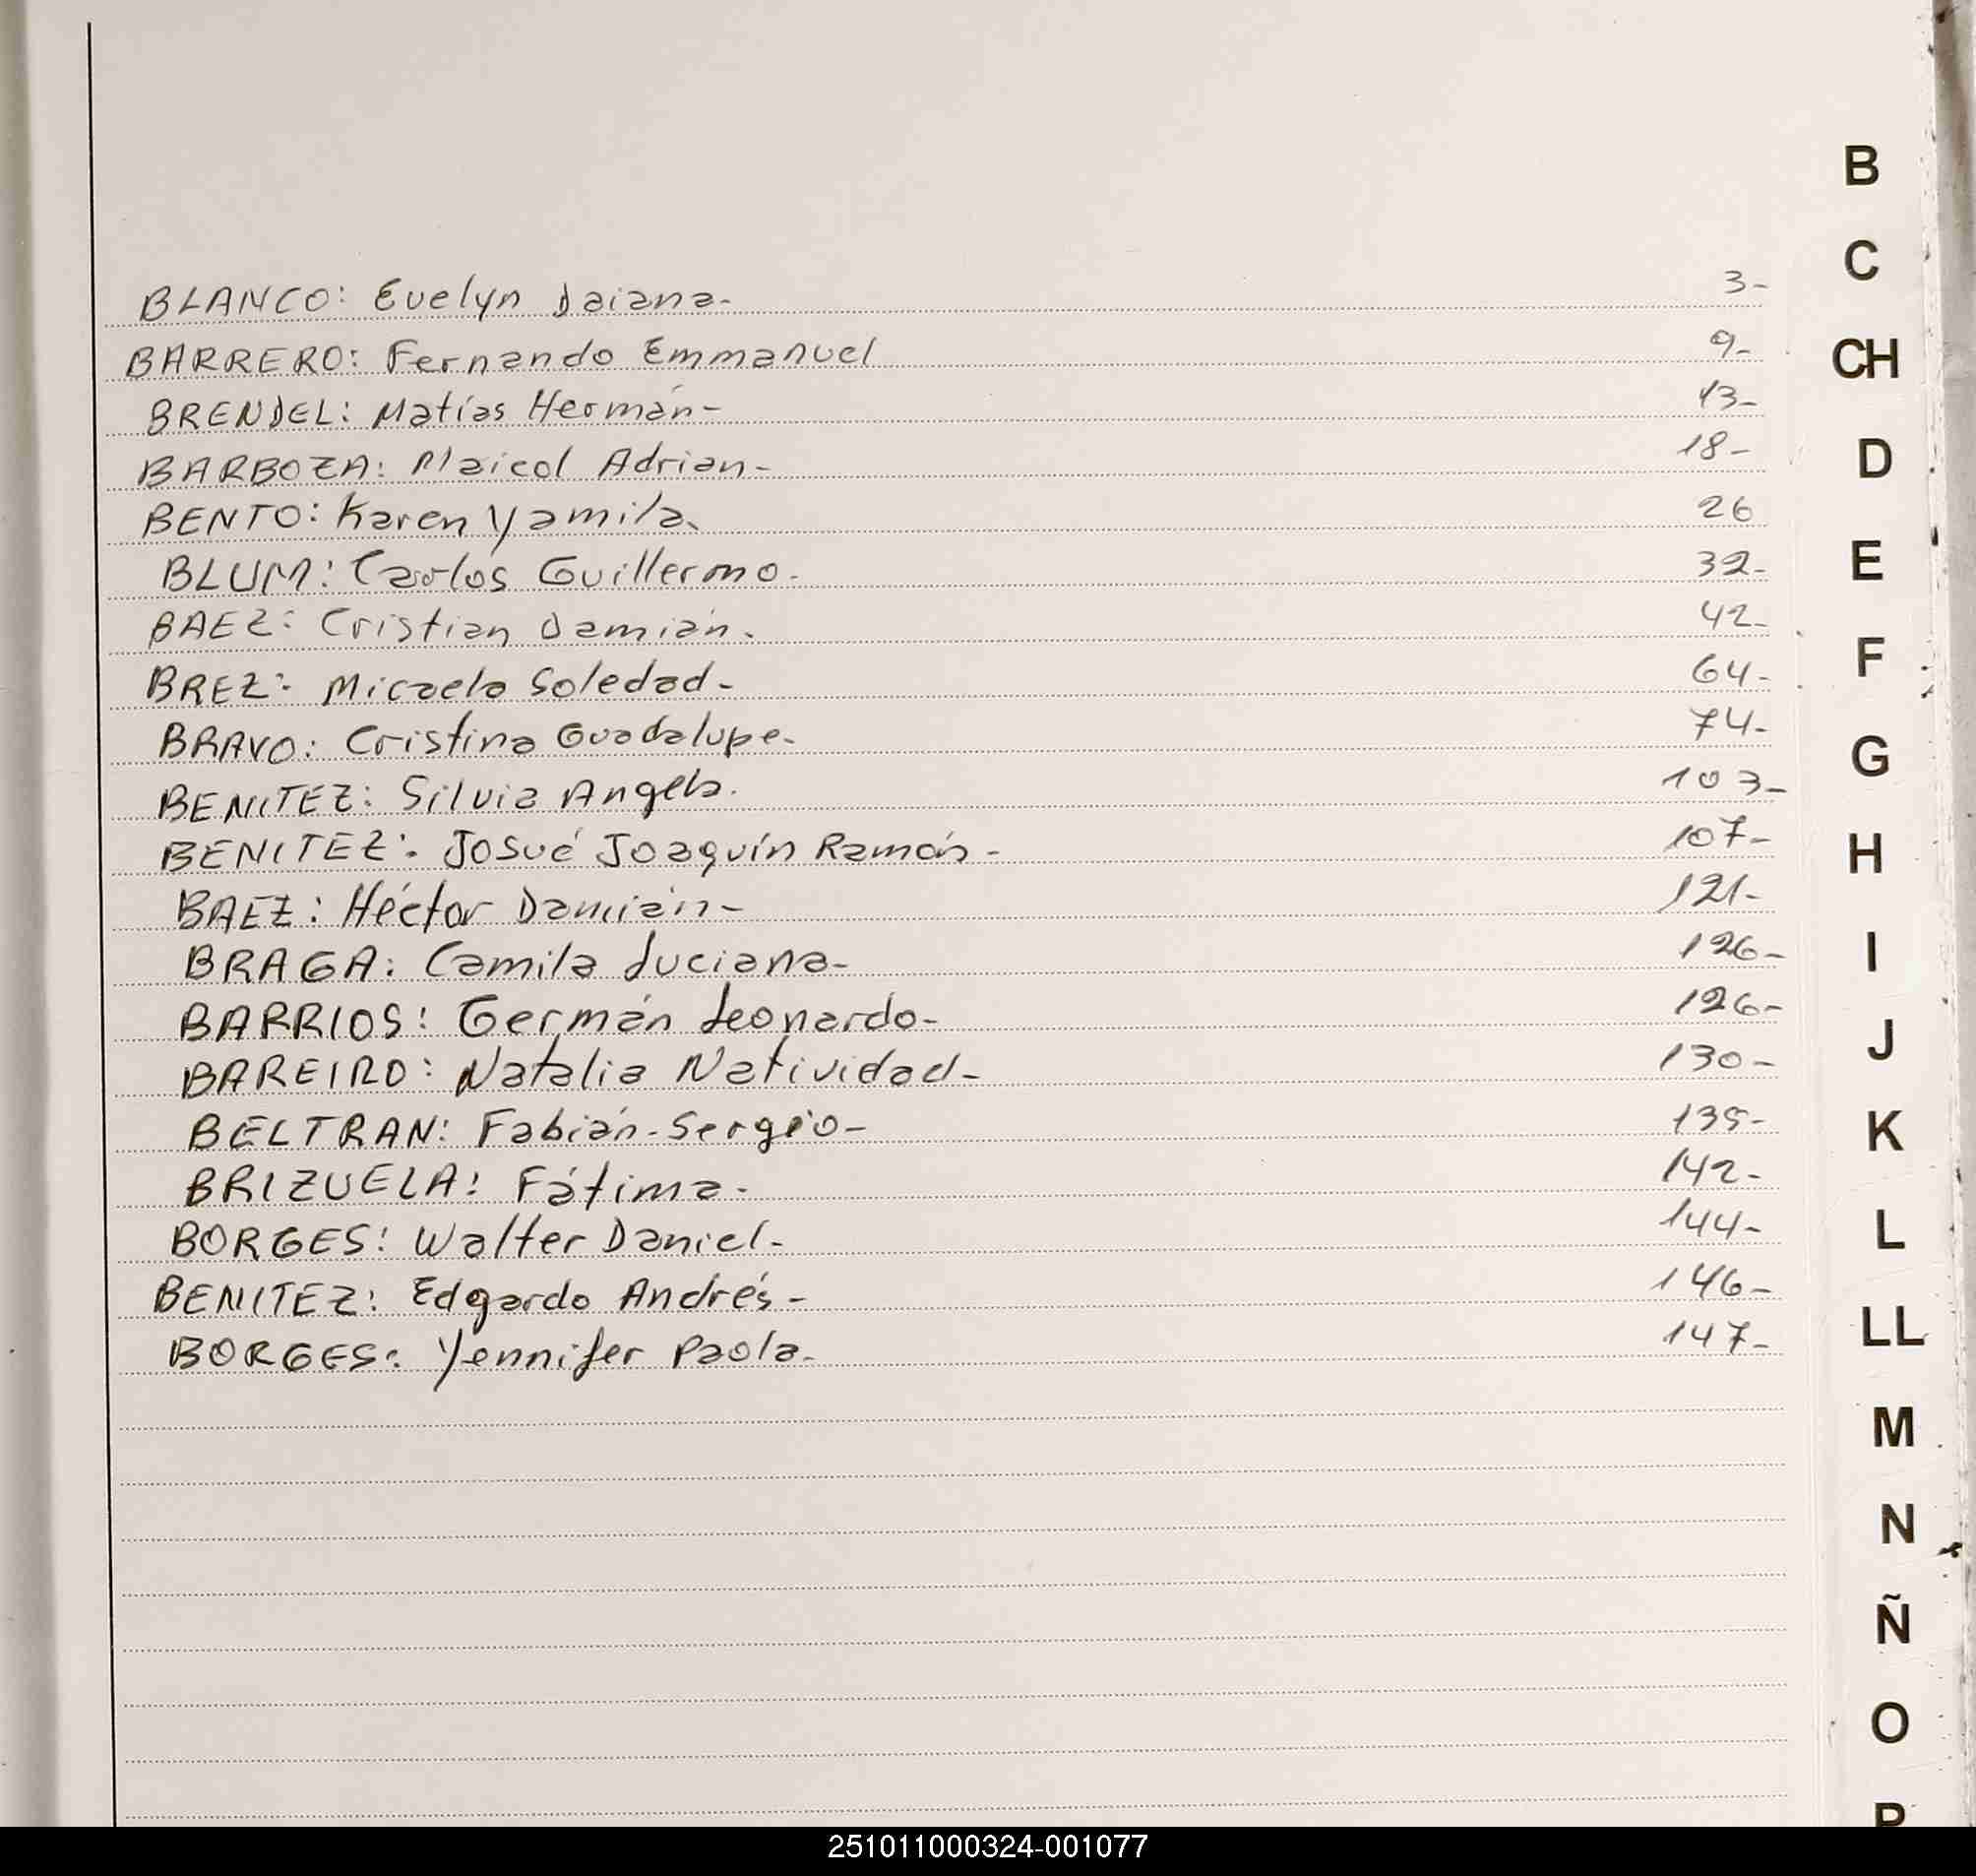 BLANCO: Evelyn Daiana- 3-
BARRERO: Fernando Emmanuel 9-
BRENDEL: Matías Hermán- 13-
BARBOZA: Maicol Adrian- 18-
BENTO: Karen Yamila. 26
BLUM: Carlos Guillermo- 32-
BAEZ: Cristian Damián. 42-
BREZ: Micaela Soledad- 64-
BRAVO: Cristina Guadalupe- 74-
BENITEZ: Silvia Angela. 103-
BENITEZ: Josué Joaquín Ramón- 107-
BAEZ: Héctor Damián- 121-
BRAGA: Camila Luciana- 126-
BARRIOS: Germán Leonardo- 126-
BAREIRO: Natalia Natividad- 130-
BELTRAN: Fabián-Sergio- 135-
BRIZUELA: Fátima- 142-
BORGES: Walter Daniel- 144-
BENITEZ: Edgardo Andrés- 146-
BORGES: Yennifer Paola- 147-
B
C
CH
D
E
F
G
H
I
J
K
L
LL
M
N
Ñ
O
P
251011000324-001077